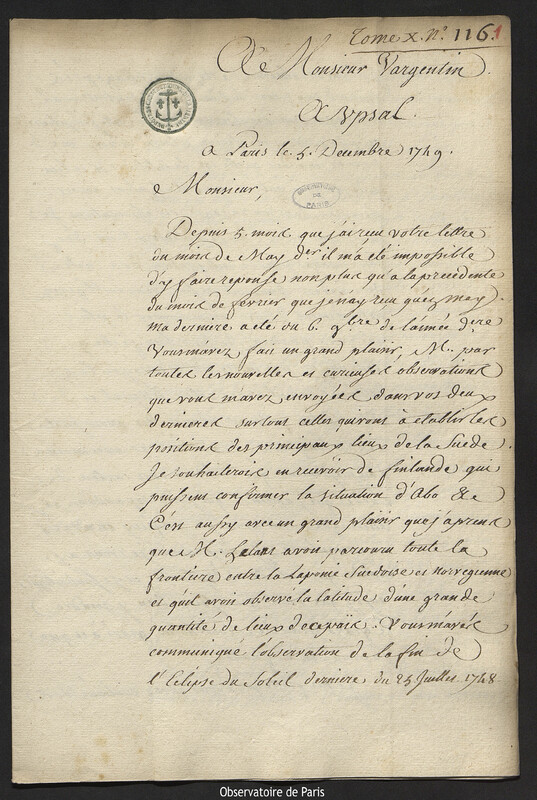 Tome X. N.º 116. 1
A Monsieur Vargentin.
A Upsal.
a Paris le 5. Decembre 1749.
Monsieur,
OBSERVATOIRE DE PARIS
Depuis 5. mois que j'ai reçu votre lettre
du mois de May d.er il m'a été impossible
d'y faire reponse non plus qu'a la precedente
du mois de fevrier que je n'ay reçu qu'en may.
ma derniere a été du 6. 9bre de l'année d.ere
Vous m'avez fait un grand plaisir, M. par
toutes les nouvelles et curieuses observations
que vous m'avez envoyées dans vos deux
dernieres surtout celles qui vont à etablir les
positions des principaux lieux de la Suede.
Je souhaiterois en recevoir de finlande qui
puissent confirmer la situation d'Abo &c
C'est aussy avec un grand plaisir que j'aprend
que M. avoit parcouru toute la
frontiere entre la Laponie Suedoise et Norvegienne
et qu'il avoit observé la latitude d'une grande
quantité de lieux de ce païs. Vous m'avés
communiqué l'observation de la fin de
l'Eclipse du Soleil derniere du 25 Juillet 1748
Observatoire de Paris